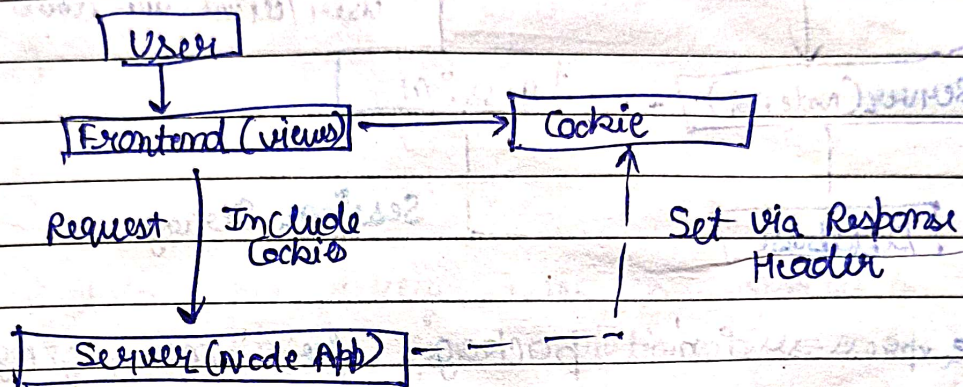 User
Frontend (views)
Cookie
Request
Include
Cookies
Set via Response
Header
Server (Node App)